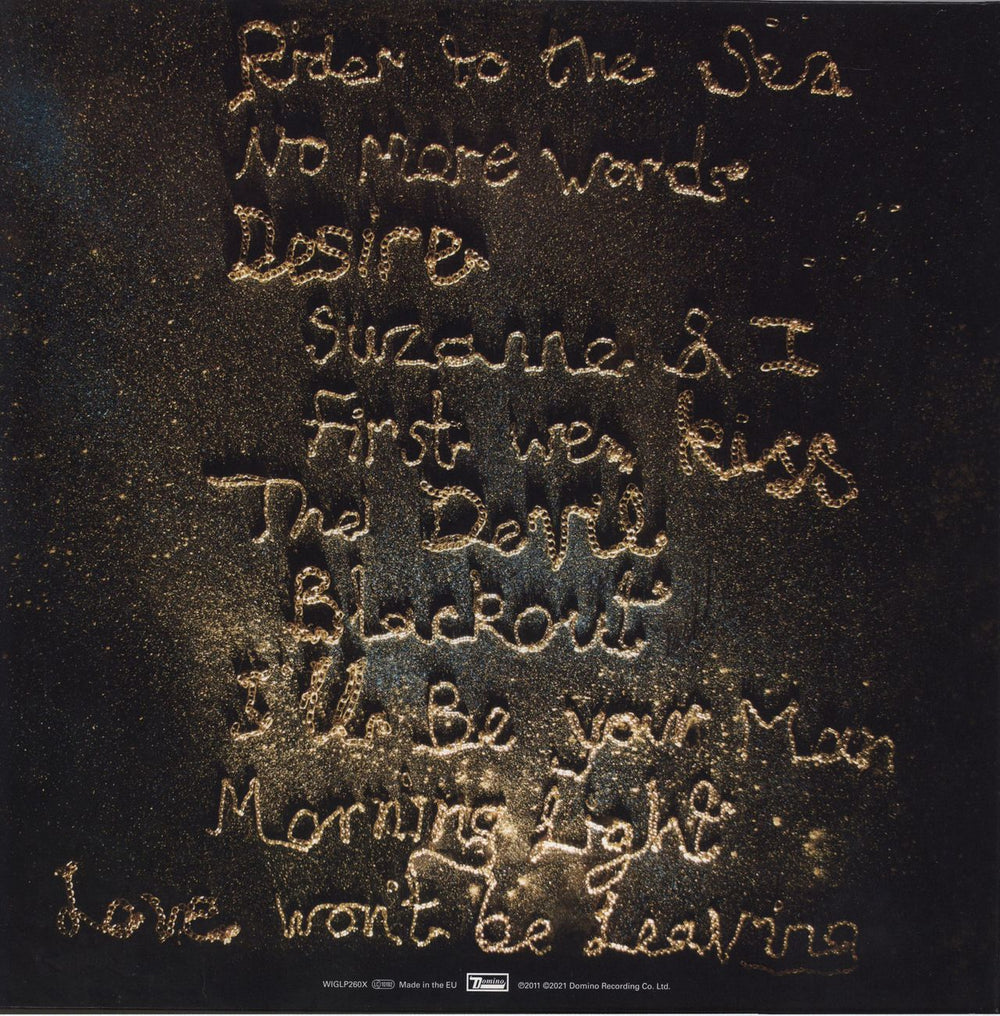 Rider to the Sea
No More Words
Desire
Suzanne & I
First we kiss
The Devil
Blackout
I'll Be your Man
Morning Light
Love won't be Leaving
WIGLP260X LC 10192 Made in the EU Domino ℗2011 ©2021 Domino Recording Co. Ltd.